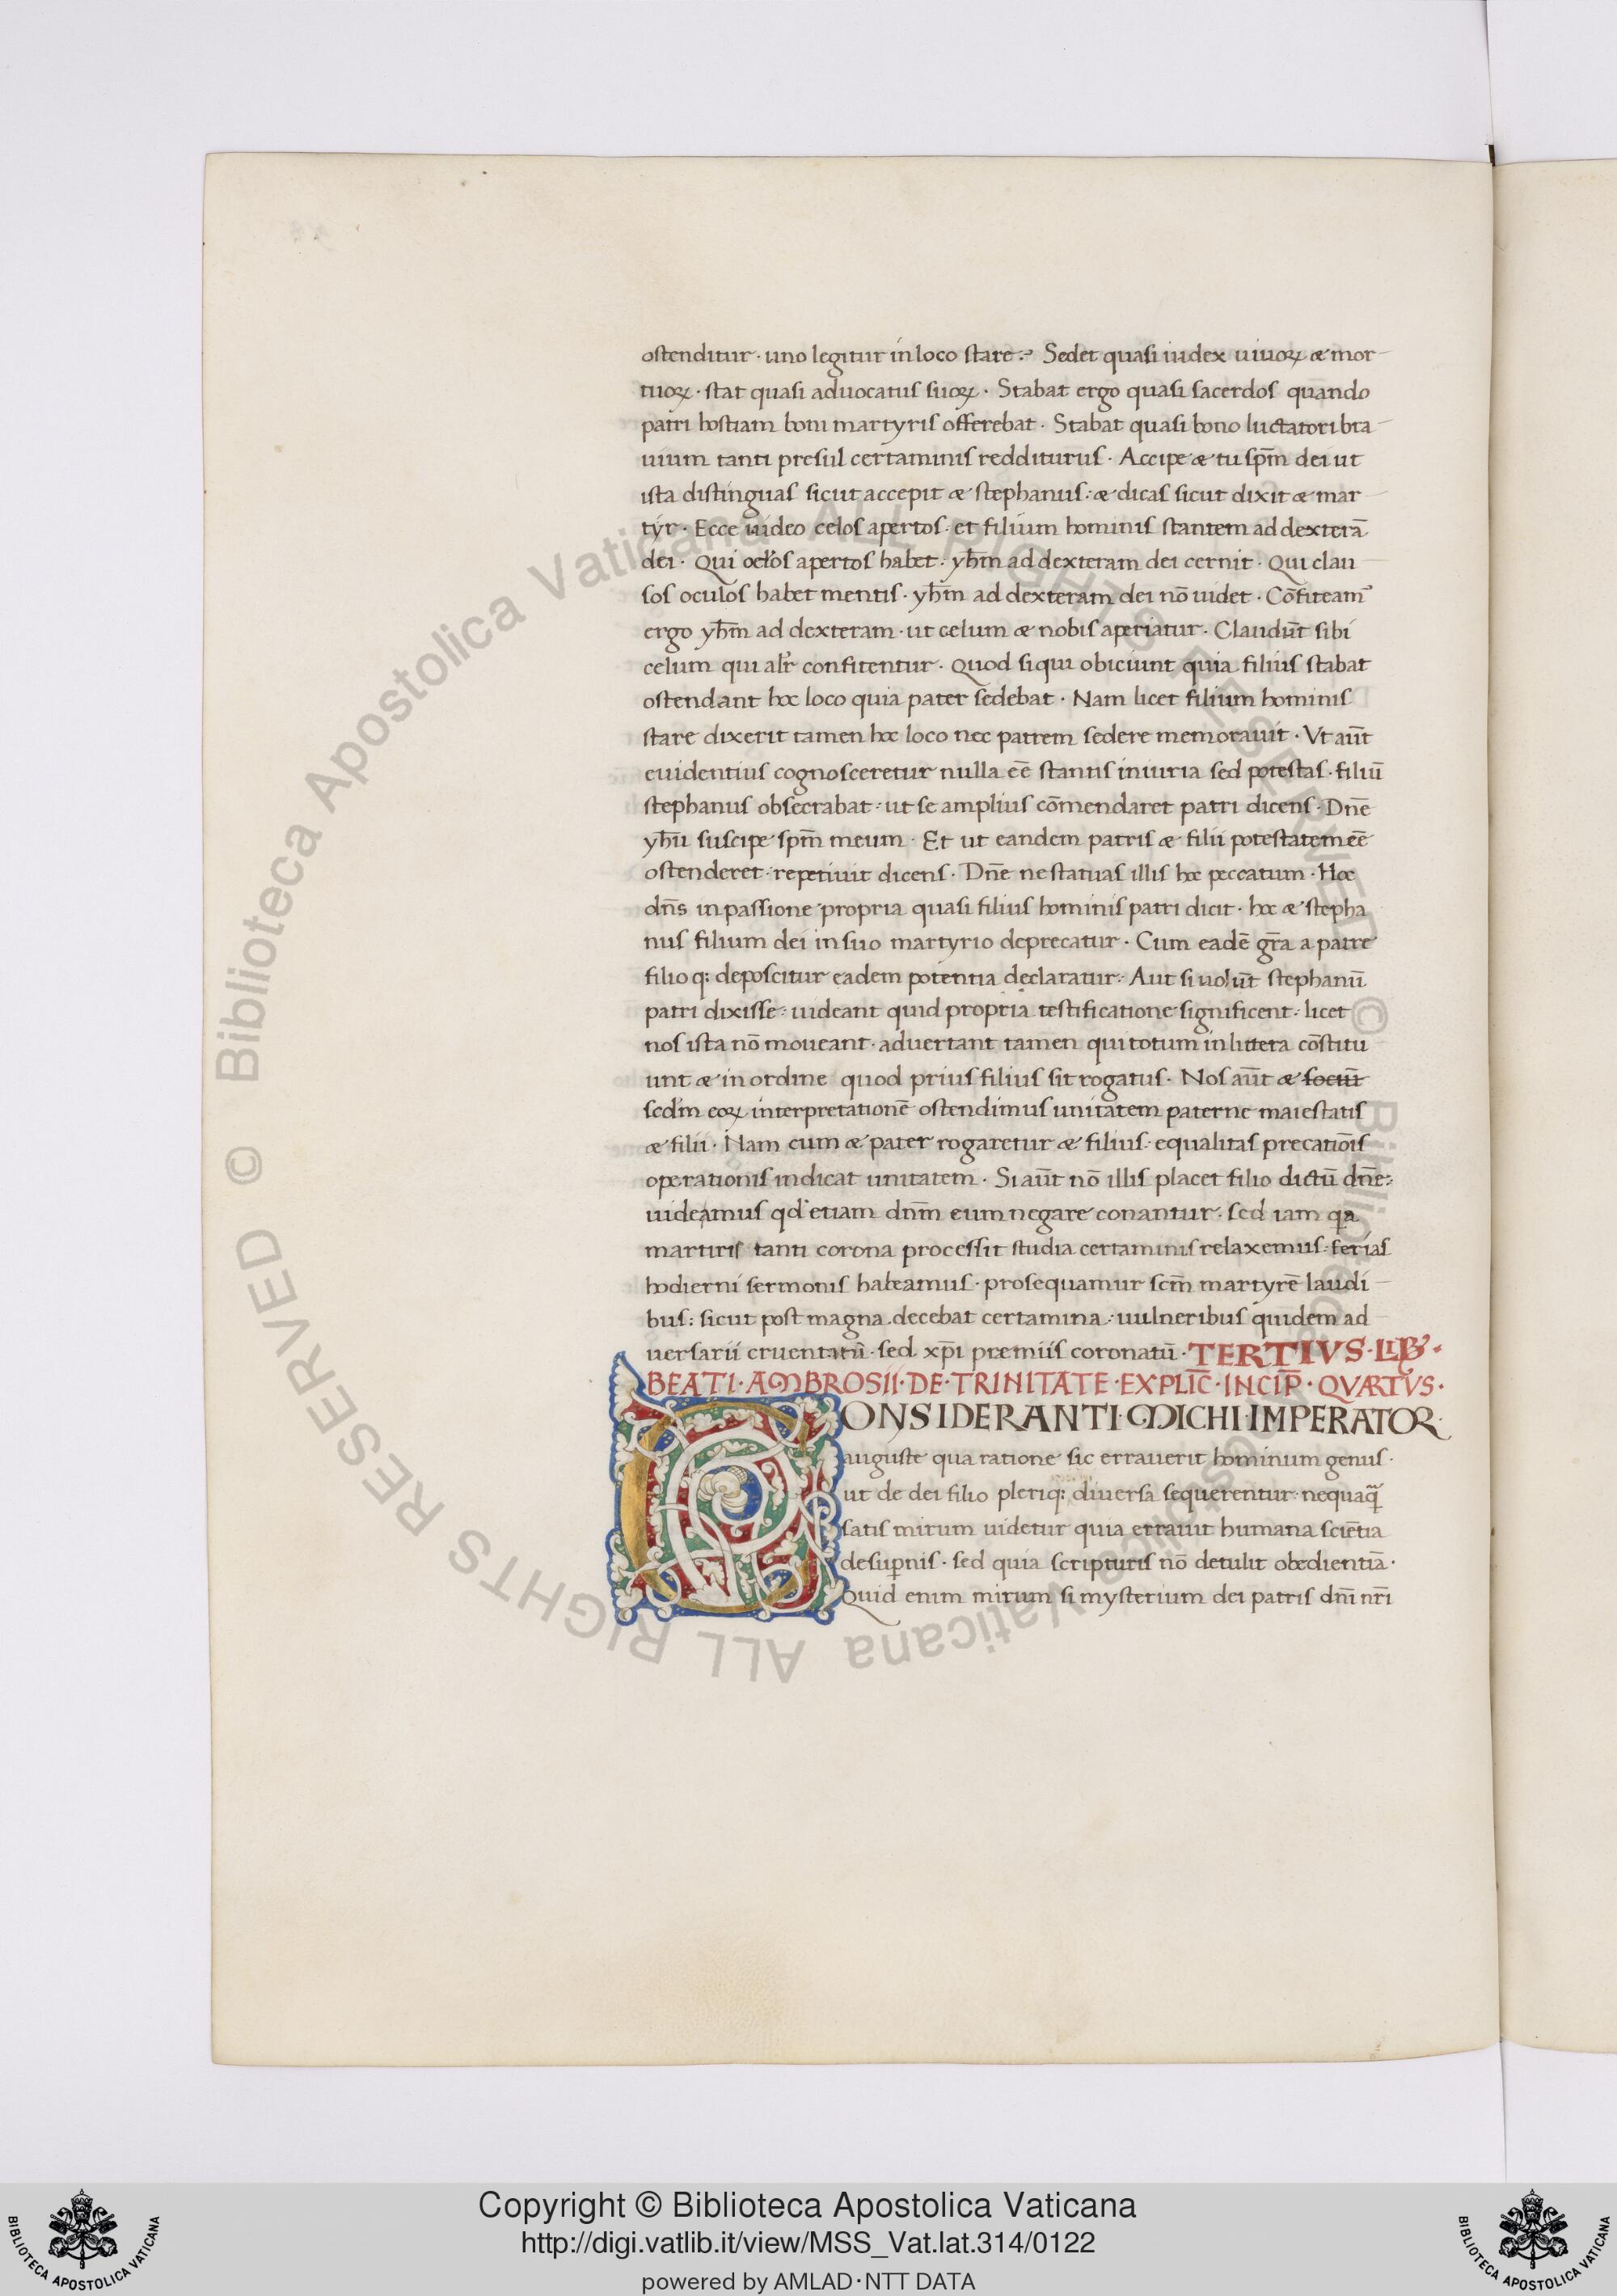 ostenditur · uno legitur in loco stare :· Sedet quasi iudex uiuoꝝ & mor
tuoꝝ · stat quasi aduocatus suoꝝ · Stabat ergo quasi sacerdos quando
patri hostiam boni martyris offerebat · Stabat quasi bono luctatori bra
uium tanti presul certaminis redditurus · Accipe & tu sp̄m dei ut
ista distinguas sicut accepit & stephanus : & dicas sicut dixit & mar
tyr · Ecce uideo celos apertos : et filium hominis stantem ad dexterā
dei · Qui oc̄los apertos habet · yh̄m ad dexteram dei cernit · Qui clau
sos oculos habet mentis · yh̄m ad dexteram dei nō uidet · Cōfiteam᷒
ergo yh̄m ad dexteram · ut celum & nobis aperiatur · Claudūt sibi
celum qui alr̄ confitentur · Quod si qui obiciunt quia filius stabat
ostendant hoc loco quia pater sedebat · Nam licet filium hominis
stare dixerit tamen hoc loco nec patrem sedere memorauit · Vt aūt
euidentius cognosceretur nulla eē stantis iniuria sed potestas · filiū
stephanus obsecrabat : ut se amplius cōmendaret patri dicens · Dn̄e
yh̄u suscipe sp̄m meum · Et ut eandem patris & filii potestatem eē
ostenderet · repetiuit dicens · Dn̄e ne statuas illis hoc peccatum · Hoc
dn̄s in passione propria quasi filius hominis patri dicit · hoc & stepha
nus filium dei in suo martyrio deprecatur · Cum eadē gr̄a a patre
filioq: deposcitur eadem potentia declaratur : Aut si uolūt stephanū
patri dixisse : uideant quid propria testificatione significent : licet
nos ista nō moueant · aduertant tamen qui totum in littera cōstitu
unt & in ordine quod prius filius sit rogatus · Nos aūt & socūt
sedm eoꝝ interpretationē ostendimus unitatem paterne maiestatis
& filii · Nam cum & pater rogaretur & filius · equalitas precatiōis
operationis indicat unitatem · Si aūt nō illis placet filio dictū dn̄e :
uideamus qd etiam dn̄m eum negare conantur · sed iam qa
martiris tanti corona processit studia certaminis relaxemus : ferias
hodierni sermonis habeamus · prosequamur scm̄ martyrē laudi
bus : sicut post magna decebat certamina : uulneribus quidem ad
uersarii cruentatū · sed xp̄i premiis coronatū · TERTIVS · LIB ·
BEATI · AMBROSII · DE · TRINITATE · EXPLIC̄ · INCIP̄ · QVARTVS ·
CONSIDERANTI · MICHI · IMPERATOR ·
auguste qua ratione sic errauerit hominum genus ·
ut de dei filio pleriq: diuersa sequerentur : nequaq̄
satis mirum uidetur quia errauit humana sciētia
de sup̄nis · sed quia scripturis nō detulit obedientiā ·
Quid enim mirum si mysterium dei patris dn̄i nr̄i
© Biblioteca Apostolica Vaticana ALL RIGHTS RESERVED © Biblioteca Apostolica Vaticana ALL RIGHTS RESERVED
Copyright © Biblioteca Apostolica Vaticana
http://digi.vatlib.it/view/MSS_Vat.lat.314/0122
powered by AMLAD·NTT DATA
BIBLIOTECA APOSTOLICA VATICANA
BIBLIOTECA APOSTOLICA VATICANA